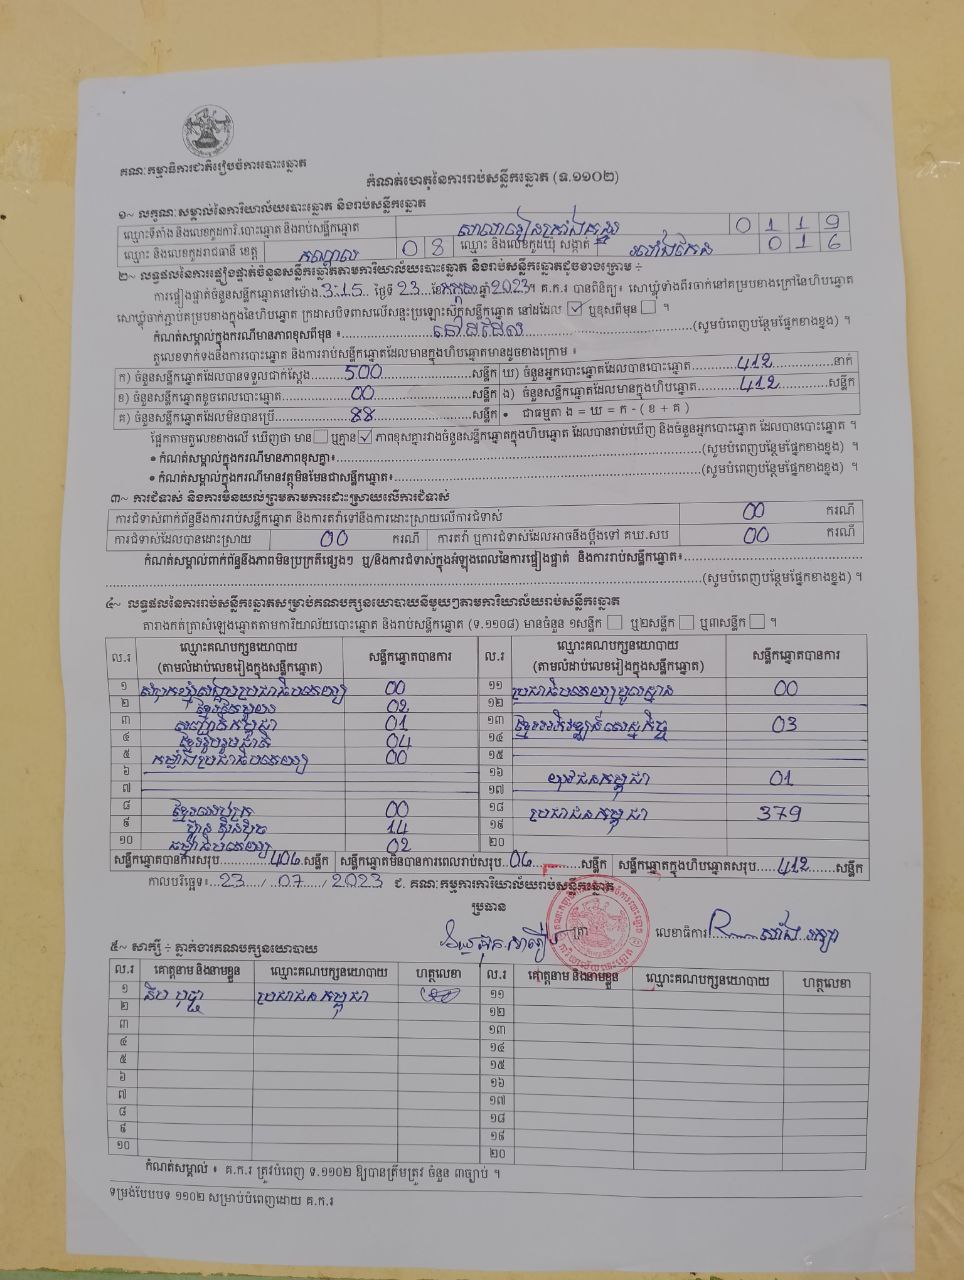 គណៈកម្មាធិការជាតិរៀបចំការបោះឆ្នោត
កំណត់ហេតុនៃការរាប់សន្លឹកឆ្នោត (ទ.១១០២)
១~ លក្ខណៈសម្គាល់នៃការិយាល័យបោះឆ្នោត និងរាប់សន្លឹកឆ្នោត
ឈ្មោះទីតាំង និងលេខកូដការិ.បោះឆ្នោត និងរាប់សន្លឹកឆ្នោត 0119
ឈ្មោះ និងលេខកូដរាជធានី ខេត្ត កណ្តាល 08 ឈ្មោះ និងលេខកូដឃុំ សង្កាត់ 016
២~ លទ្ធផលនៃការផ្ទៀងផ្ទាត់ចំនួនសន្លឹកឆ្នោតតាមការិយាល័យបោះឆ្នោត និងរាប់សន្លឹកឆ្នោតដូចខាងក្រោម ÷
ការផ្ទៀងផ្ទាត់ចំនួនសន្លឹកឆ្នោតនៅម៉ោង 3:15 ថ្ងៃទី 23 ខែ កក្កដា ឆ្នាំ 2023 ។ គ.ក.រ បានពិនិត្យ៖ សោឃ្លុំទាំងពីរចាក់នៅគម្របខាងក្រៅនៃហិបឆ្នោត
សោឃ្លុំចាក់ភ្ជាប់គម្របខាងក្នុងនៃហិបឆ្នោត ក្រដាសបិទពាសលើសន្ទះប្រឡោះស៊កសន្លឹកឆ្នោត នៅដដែល ☑ ឬខុសពីមុន ☐ ។
កំណត់សម្គាល់ក្នុងករណីមានភាពខុសពីមុន ៖ នៅដដែល (សូមបំពេញបន្ថែមផ្នែកខាងខ្នង) ។
តួលេខទាក់ទងនឹងការបោះឆ្នោត និងការរាប់សន្លឹកឆ្នោតដែលមានក្នុងហិបឆ្នោតមានដូចខាងក្រោម ៖
ក) ចំនួនសន្លឹកឆ្នោតដែលបានទទួលជាក់ស្តែង 500 សន្លឹក ឃ) ចំនួនអ្នកបោះឆ្នោតដែលបានបោះឆ្នោត 412 នាក់
ខ) ចំនួនសន្លឹកឆ្នោតខូចពេលបោះឆ្នោត 00 សន្លឹក ង) ចំនួនសន្លឹកឆ្នោតដែលមានក្នុងហិបឆ្នោត 412 សន្លឹក
គ) ចំនួនសន្លឹកឆ្នោតដែលមិនបានប្រើ 88 សន្លឹក • ជាធម្មតា ង = ឃ = ក - ( ខ + គ )
ផ្អែកតាមតួលេខខាងលើ ឃើញថា មាន ☐ ឬគ្មាន ☑ ភាពខុសគ្នារវាងចំនួនសន្លឹកឆ្នោតក្នុងហិបឆ្នោត ដែលបានរាប់ឃើញ និងចំនួនអ្នកបោះឆ្នោត ដែលបានបោះឆ្នោត ។
• កំណត់សម្គាល់ក្នុងករណីមានភាពខុសគ្នា៖ (សូមបំពេញបន្ថែមផ្នែកខាងខ្នង) ។
• កំណត់សម្គាល់ក្នុងករណីមានវត្ថុមិនមែនជាសន្លឹកឆ្នោត៖ (សូមបំពេញបន្ថែមផ្នែកខាងខ្នង) ។
៣~ ការជំទាស់ និងការមិនយល់ព្រមតាមការដោះស្រាយលើការជំទាស់
ការជំទាស់ពាក់ព័ន្ធនឹងការរាប់សន្លឹកឆ្នោត និងការតវ៉ាទៅនឹងការដោះស្រាយលើការជំទាស់ 00 ករណី
ការជំទាស់ដែលបានដោះស្រាយ 00 ករណី ការតវ៉ា ឬការជំទាស់ដែលអាចនឹងប្តឹងទៅ គឃ.សប 00 ករណី
កំណត់សម្គាល់ពាក់ព័ន្ធនឹងភាពមិនប្រក្រតីផ្សេងៗ ឬ/និងការជំទាស់ក្នុងអំឡុងពេលនៃការផ្ទៀងផ្ទាត់ និងការរាប់សន្លឹកឆ្នោត៖
(សូមបំពេញបន្ថែមផ្នែកខាងខ្នង) ។
៤~ លទ្ធផលនៃការរាប់សន្លឹកឆ្នោតសម្រាប់គណបក្សនយោបាយនីមួយៗតាមការិយាល័យរាប់សន្លឹកឆ្នោត
តារាងកត់ត្រាសំឡេងឆ្នោតតាមការិយាល័យបោះឆ្នោត និងរាប់សន្លឹកឆ្នោត (ទ.១១០៨) មានចំនួន ១សន្លឹក ☐ ឬ២សន្លឹក ☐ ឬ៣សន្លឹក ☐ ។
ល.រ ឈ្មោះគណបក្សនយោបាយ (តាមលំដាប់លេខរៀងក្នុងសន្លឹកឆ្នោត) សន្លឹកឆ្នោតបានការ ល.រ ឈ្មោះគណបក្សនយោបាយ (តាមលំដាប់លេខរៀងក្នុងសន្លឹកឆ្នោត) សន្លឹកឆ្នោតបានការ
១ 00 ១១ ប្រជាធិបតេយ្យមូលដ្ឋាន 00
២ ខ្មែរ 02 ១២
៣ កម្ពុជា 01 ១៣ ខ្មែរអភិវឌ្ឍន៍សេដ្ឋកិច្ច 03
៤ ខ្មែររួបរួមជាតិ 04 ១៤
៥ កម្លាំងប្រជាធិបតេយ្យ 00 ១៥
៦ ១៦ យុវជនកម្ពុជា 01
៧ ១៧
៨ ខ្មែរ 00 ១៨ ប្រជាជនកម្ពុជា 379
៩ ហ៊្វុនស៊ិនប៉ិច 14 ១៩
១០ ធម្មាធិបតេយ្យ 02 ២០
សន្លឹកឆ្នោតបានការសរុប 406 សន្លឹក សន្លឹកឆ្នោតមិនបានការពេលរាប់សរុប 06 សន្លឹក សន្លឹកឆ្នោតក្នុងហិបឆ្នោតសរុប 412 សន្លឹក
កាលបរិច្ឆេទ៖ 23 / 07 / 2023 ជ. គណៈកម្មការការិយាល័យរាប់សន្លឹកឆ្នោត
ប្រធាន
ត្រា លេខាធិការ
៥~ សាក្សី ÷ ភ្នាក់ងារគណបក្សនយោបាយ
ល.រ គោត្តនាម និងនាមខ្លួន ឈ្មោះគណបក្សនយោបាយ ហត្ថលេខា ល.រ គោត្តនាម និងនាមខ្លួន ឈ្មោះគណបក្សនយោបាយ ហត្ថលេខា
១ ប្រជាជនកម្ពុជា ១១
២ ១២
៣ ១៣
៤ ១៤
៥ ១៥
៦ ១៦
៧ ១៧
៨ ១៨
៩ ១៩
១០ ២០
កំណត់សម្គាល់ ៖ គ.ក.រ ត្រូវបំពេញ ទ.១១០២ ឱ្យបានត្រឹមត្រូវ ចំនួន ៣ច្បាប់ ។
ទម្រង់បែបបទ ១១០២ សម្រាប់បំពេញដោយ គ.ក.រ